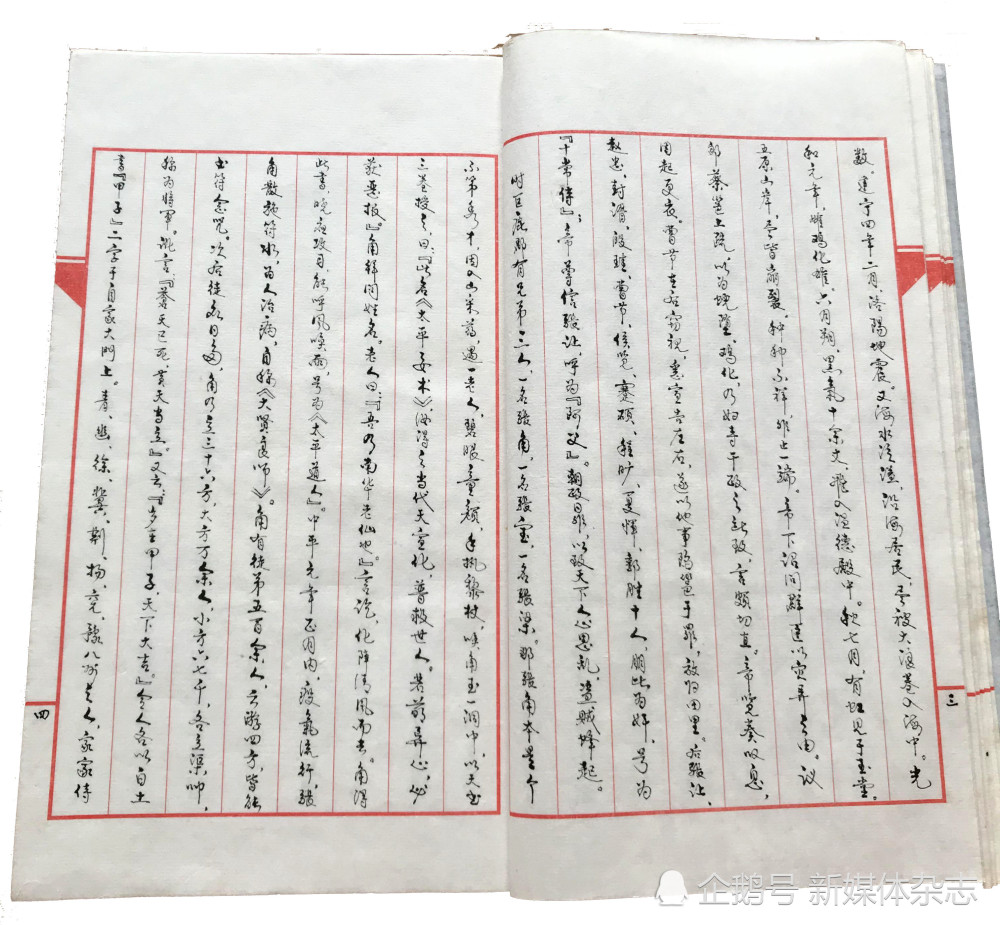 数。建宁四年二月，洛阳地震。又海水泛溢，沿海居民，尽被大浪卷入海中。光
和元年，雌鸡化雄。六月朔，黑氣十余丈，飞入温德殿中。秋七月，有虹见于玉堂。
五原山岸，尽皆崩裂。种种不祥，非止一端。帝下诏问群臣以灾异之由。议
郎蔡邕上疏，以为蜺堕、鸡化，乃妇寺干政之所致，言颇切直。帝览奏叹息，
因起更衣。曹节在后窃视，悉宣告左右，遂以他事陷邕于罪，放归田里。后张让、
赵忠、封谞、段珪、曹节、侯览、蹇硕、程旷、夏恽、郭胜十人，朋比为奸，号为
『十常侍』；帝尊信张让，呼为『阿父』。朝政日非，以致天下人心思乱，盗贼蜂起。
时巨鹿郡有兄弟三人，一名张角，一名张宝，一名张梁。那张角本是个
三
不第秀才，因入山采药，遇一老人，碧眼童颜，手执藜杖，唤角至一洞中，以天书
三卷授之，曰：『此名《太平要术》，汝得之当代天宣化，普救世人。若萌异心，必
获恶报。』角拜问姓名。老人曰：『吾乃南华老仙也。』言讫，化阵清风而去。角得
此书，晓夜攻习，能呼风唤雨，号为《太平道人》。中平元年正月内，疫氣流行，张
角散施符水，为人治病，自称《大贤良师》。角有徒弟五百余人，云游四方，皆能
书符念咒。次后徒众日多，角乃立三十六方，大方万余人，小方六七千，各立渠帅，
称为将军。讹言『苍天已死，黄天当立』。又云：『岁在甲子，天下大吉。』令人各以白土
书『甲子』二字于自家大门上。青、幽、徐、冀、荆、扬、兖、豫八州之人，家家侍
四
企鹅号 新媒体杂志